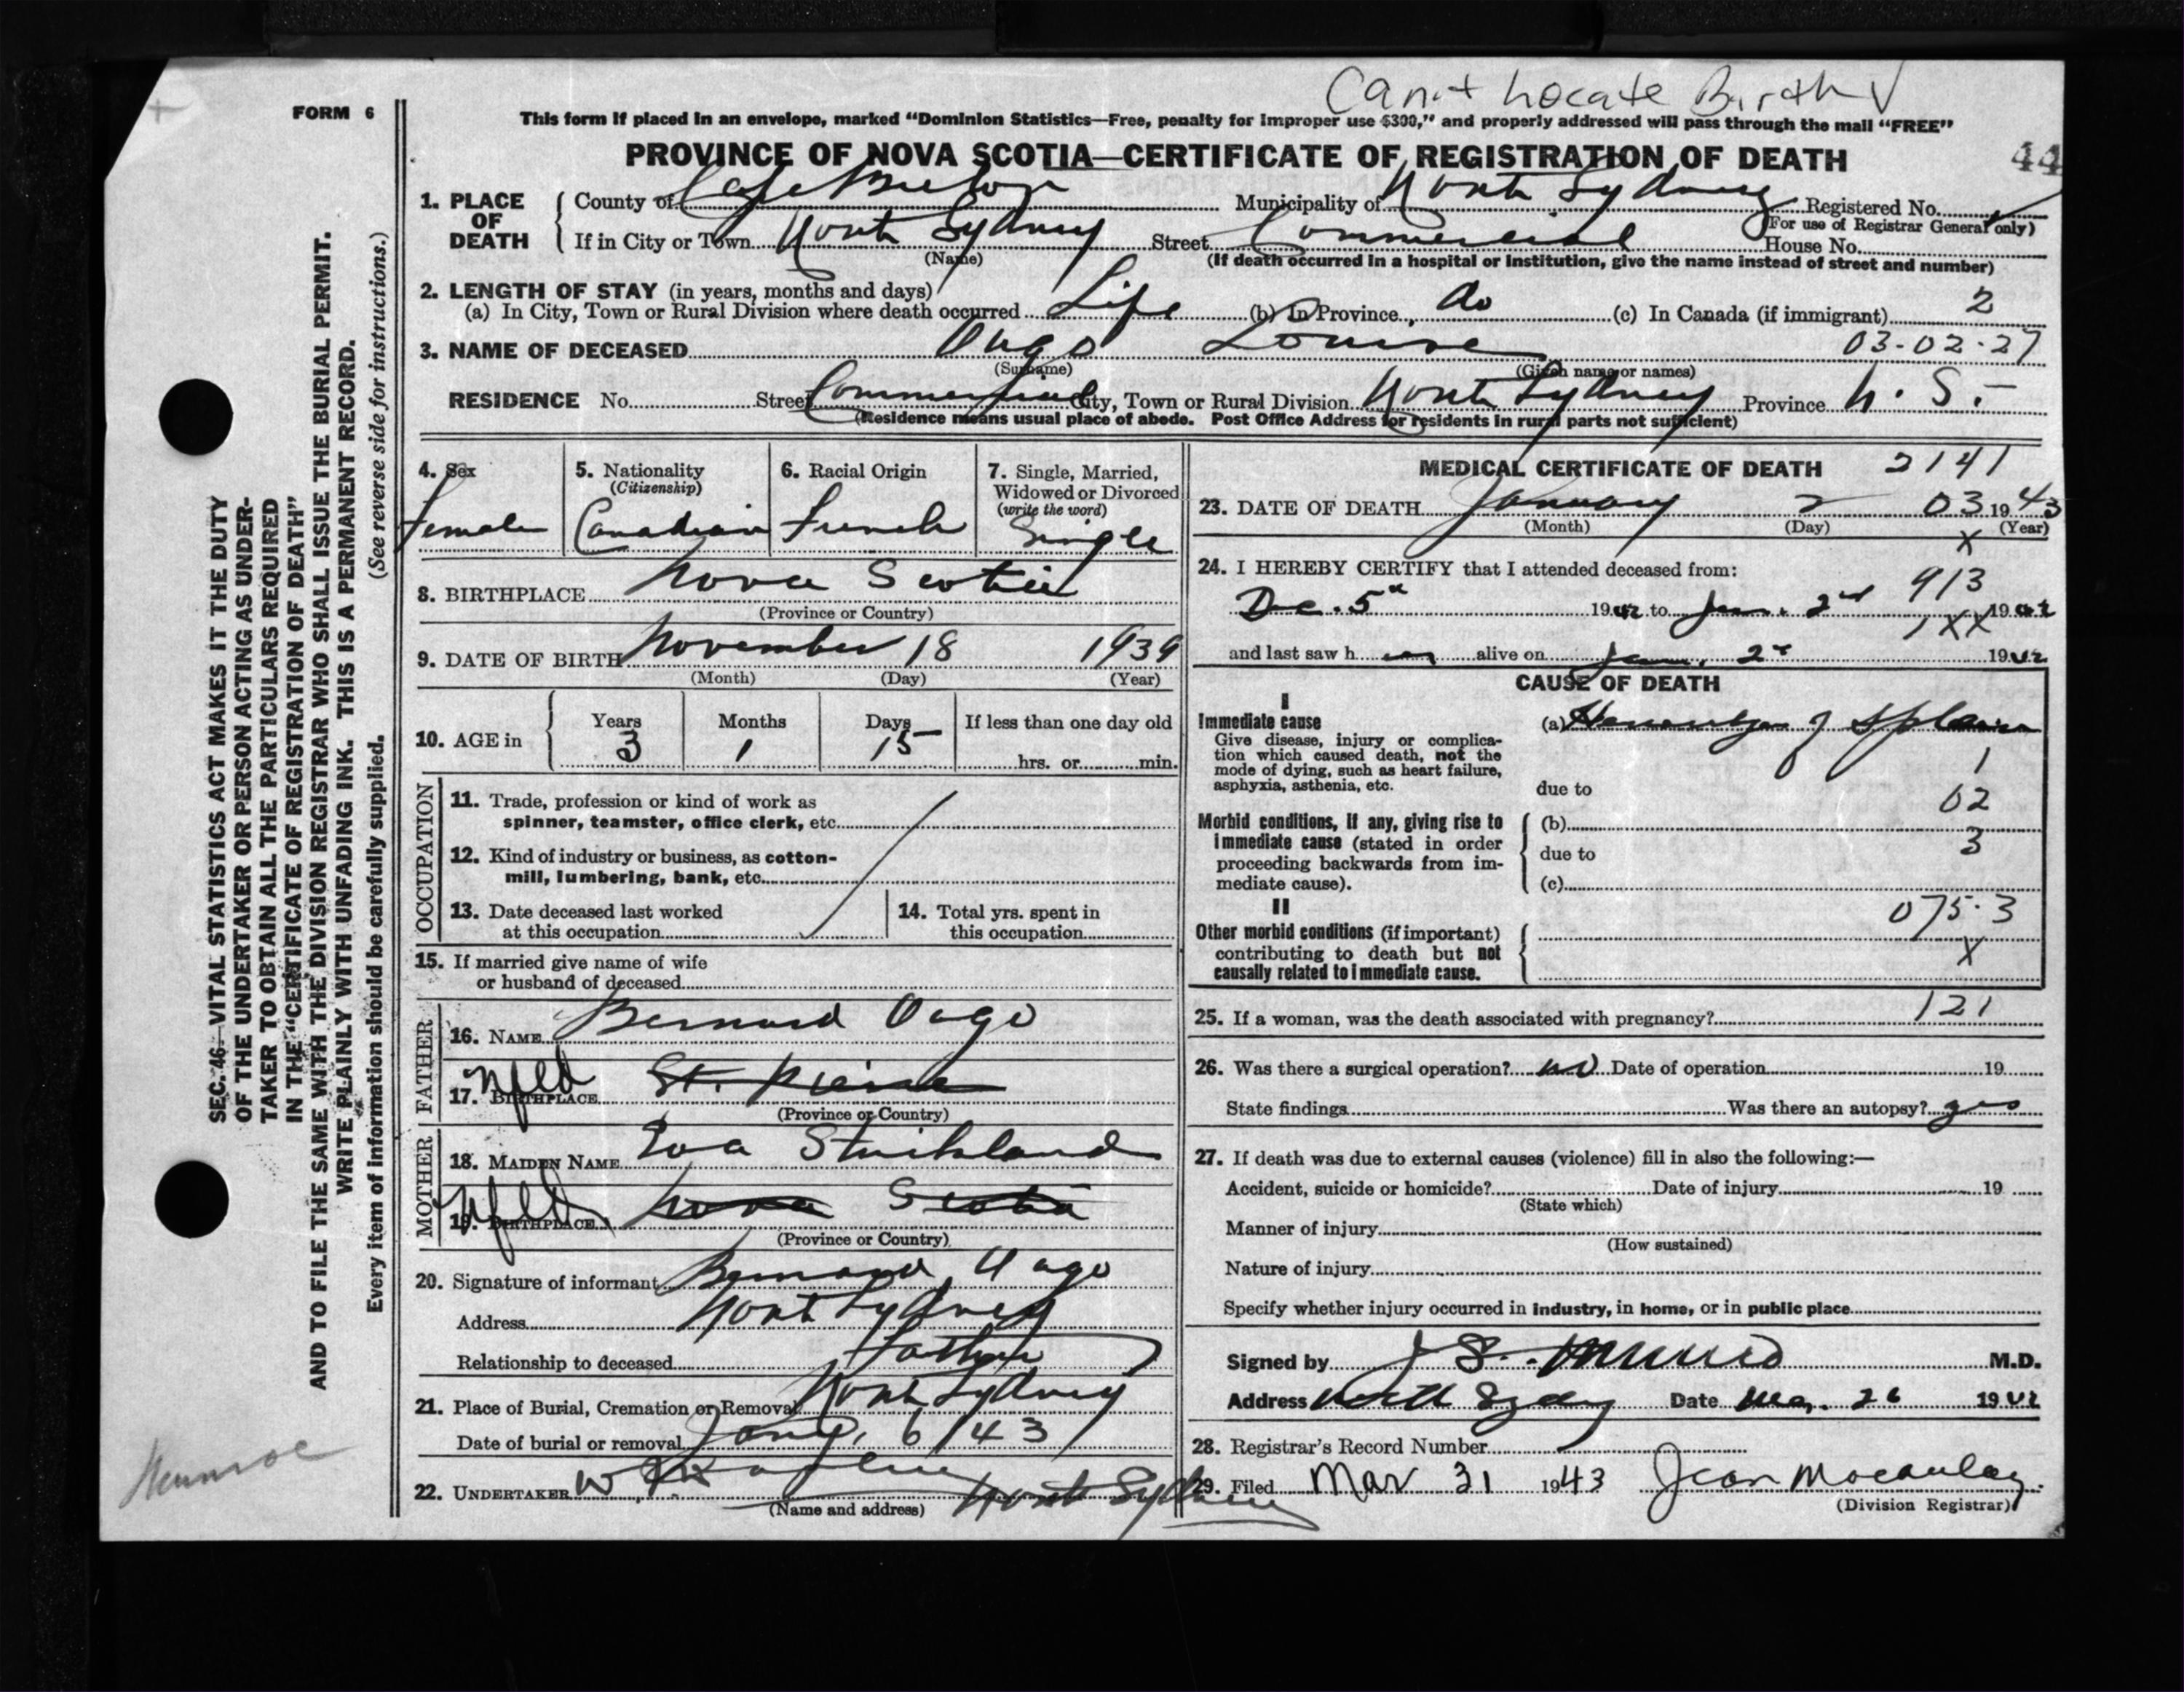 Can't Locate Birth √
FORM 6
This form if placed in an envelope, marked "Dominion Statistics—Free, penalty for improper use $300," and properly addressed will pass through the mail "FREE"
PROVINCE OF NOVA SCOTIA—CERTIFICATE OF REGISTRATION OF DEATH
44
1. PLACE OF DEATH { County of Cape Breton Municipality of North Sydney Registered No.
(For use of Registrar General only)
If in City or Town North Sydney Street Commercial House No.
(Name) (If death occurred in a hospital or institution, give the name instead of street and number)
2. LENGTH OF STAY (in years, months and days)
(a) In City, Town or Rural Division where death occurred Life (b) In Province do (c) In Canada (if immigrant) 2
3. NAME OF DECEASED Louise 03-02-27
(Surname) (Given name or names)
RESIDENCE No. Street Commercial City, Town or Rural Division North Sydney Province N. S.
(Residence means usual place of abode. Post Office Address for residents in rural parts not sufficient)
4. Sex
Female
5. Nationality
(Citizenship)
Canadian
6. Racial Origin
French
7. Single, Married,
Widowed or Divorced
(write the word)
Single
8. BIRTHPLACE Nova Scotia
(Province or Country)
9. DATE OF BIRTH November 18 1939
(Month) (Day) (Year)
10. AGE in { Years Months Days If less than one day old
3 1 15 hrs. or min.
OCCUPATION
11. Trade, profession or kind of work as
spinner, teamster, office clerk, etc.
12. Kind of industry or business, as cotton-
mill, lumbering, bank, etc.
13. Date deceased last worked
at this occupation
14. Total yrs. spent in
this occupation
15. If married give name of wife
or husband of deceased
FATHER
16. NAME Bernard
Nfld St. Pierre
17. BIRTHPLACE
(Province or Country)
MOTHER
18. MAIDEN NAME Eva Strickland
Nfld Nova Scotia
19. BIRTHPLACE
(Province or Country)
20. Signature of informant Bernard
Address North Sydney
Relationship to deceased Father
21. Place of Burial, Cremation or Removal North Sydney
Date of burial or removal Jany. 6/43
22. UNDERTAKER W. North Sydney
(Name and address)
MEDICAL CERTIFICATE OF DEATH 2141
23. DATE OF DEATH January 2 03 1943
(Month) (Day) (Year)
x
24. I HEREBY CERTIFY that I attended deceased from:
913
Dec. 5th 1942 to Jan. 2nd 19
1XX
and last saw h er alive on Jan. 2nd 19
CAUSE OF DEATH
I
Immediate cause
Give disease, injury or complica-
tion which caused death, not the
mode of dying, such as heart failure,
asphyxia, asthenia, etc.
(a) of
1
due to
02
Morbid conditions, if any, giving rise to
immediate cause (stated in order
proceeding backwards from im-
mediate cause).
(b)
3
due to
(c)
II
075.3
Other morbid conditions (if important)
contributing to death but not
causally related to immediate cause.
X
25. If a woman, was the death associated with pregnancy? 121
26. Was there a surgical operation? no Date of operation 19
State findings Was there an autopsy? yes
27. If death was due to external causes (violence) fill in also the following:—
Accident, suicide or homicide? Date of injury 19
(State which)
Manner of injury
(How sustained)
Nature of injury
Specify whether injury occurred in industry, in home, or in public place
Signed by M.D.
Address North Sydney Date Mar. 26 19
28. Registrar's Record Number
29. Filed Mar 31 1943 Jean Macaulay
(Division Registrar)
SEC. 46—VITAL STATISTICS ACT MAKES IT THE DUTY
OF THE UNDERTAKER OR PERSON ACTING AS UNDER-
TAKER TO OBTAIN ALL THE PARTICULARS REQUIRED
IN THE "CERTIFICATE OF REGISTRATION OF DEATH"
AND TO FILE THE SAME WITH THE DIVISION REGISTRAR WHO SHALL ISSUE THE BURIAL PERMIT.
WRITE PLAINLY WITH UNFADING INK. THIS IS A PERMANENT RECORD.
Every item of information should be carefully supplied. (See reverse side for instructions.)